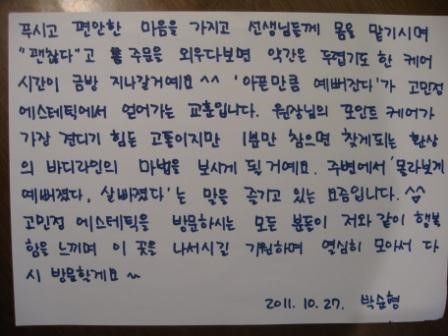 푹시고 편안한 마음을 가지고 선생님들께 몸을 맡기시며
"괜찮다"고 주문을 외우다보면 약간은 독접기도 한 케어
시간이 금방 지나갈거예요 ^^ '아픈만큼 예뻐진다'가 고민정
에스테틱에서 얻어가는 교훈입니다. 원장님의 포인트 케어가
가장 견디기 힘든 고통이지만 1분만 참으면 찾게되는 환상
의 바디라인의 마법을 보시게 될 거예요. 주변에서 '몰라보게
예뻐졌다, 살빠졌다'는 말을 즐기고 있는 요즘입니다. ^^
고민정 에스테틱을 방문하시는 모든 분들이 저와 같이 행복
함을 느끼며 이 곳을 나서시길 기원하며 열심히 모아서 다
시 방문할게요 ~
2011. 10. 27. 박순형